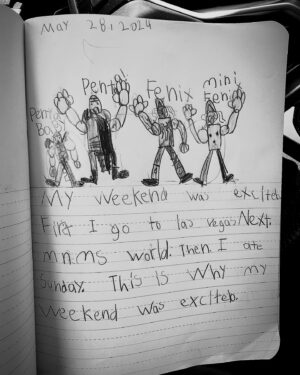 May 28, 2024
Penta
Fenix
mini
Fenix
Boy
My Weekend was excited
First I go to las vegas. Next.
mn.ms world. Then I ate
Sunday. This is Why my
weekend was exciteb.